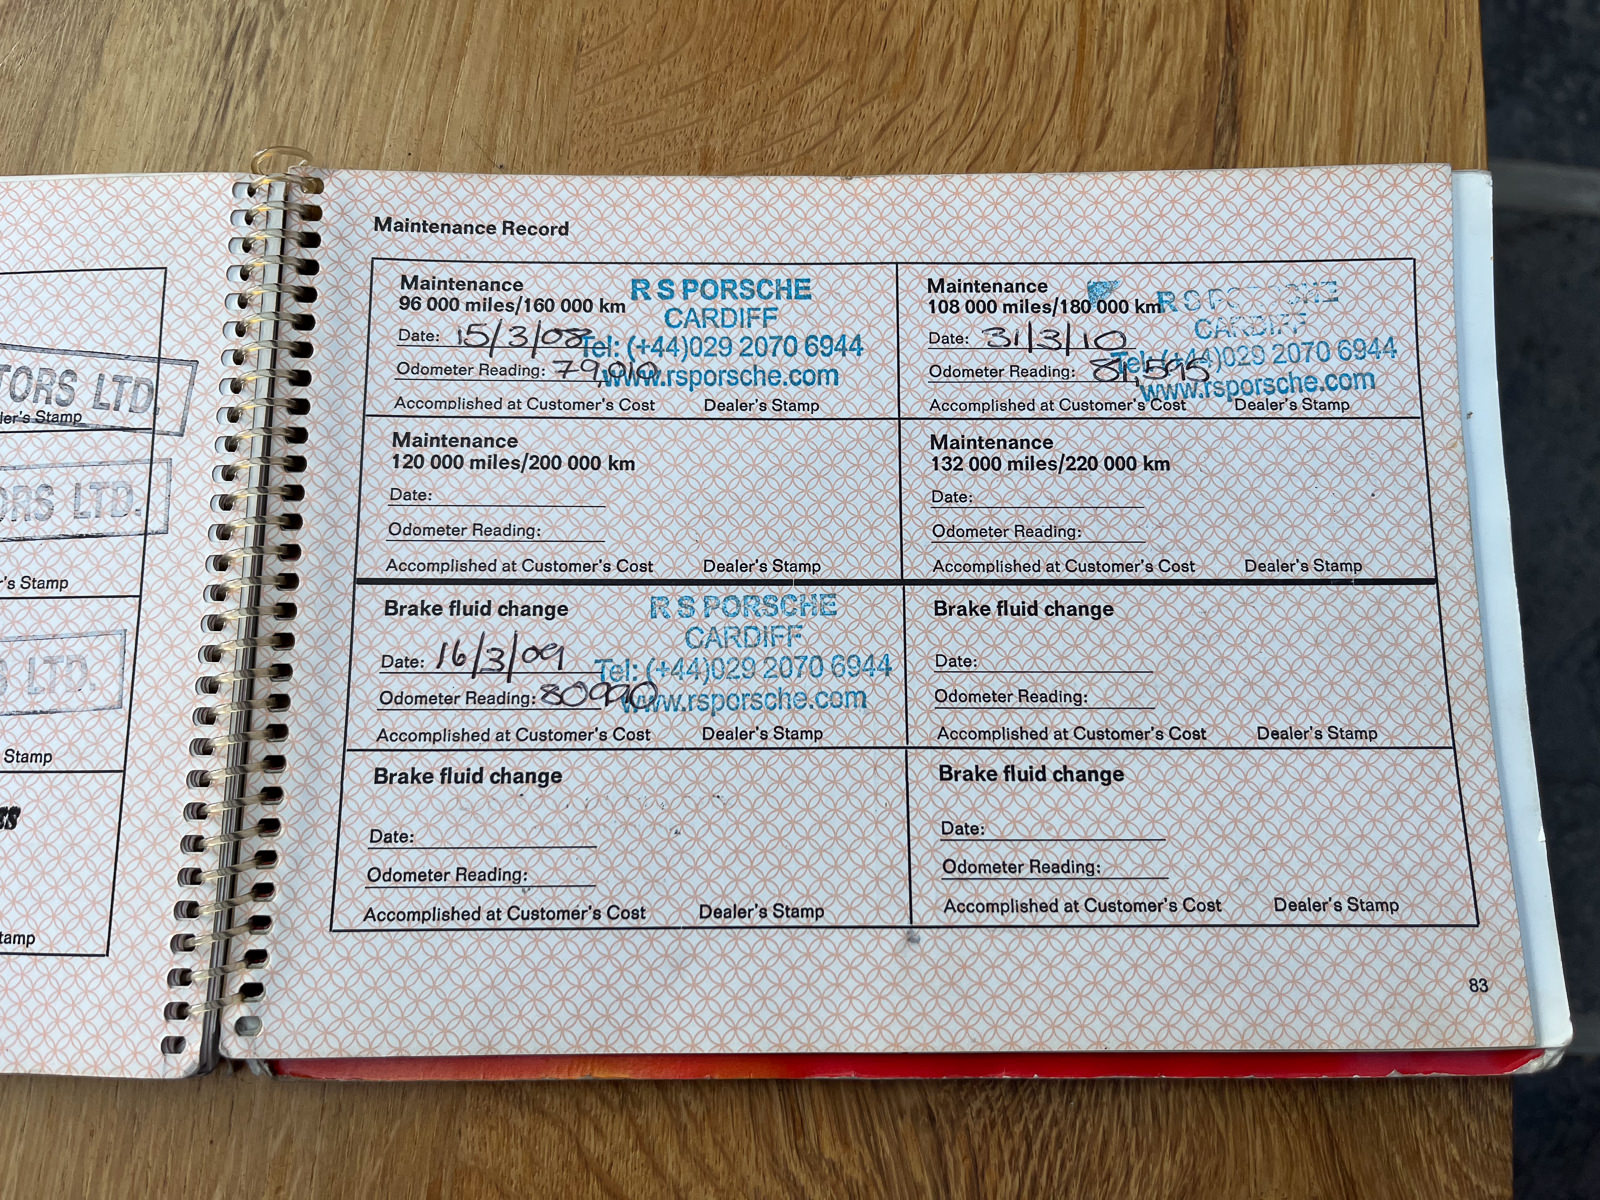 TORS LTD.
ler's Stamp
ORS LTD.
r's Stamp
LTD.
Stamp
ES
tamp
Maintenance Record
Maintenance
96 000 miles/160 000 km
Date: 15/3/08
Odometer Reading: 79,010
Accomplished at Customer's Cost Dealer's Stamp
R S PORSCHE
CARDIFF
Tel: (+44)029 2070 6944
www.rsporsche.com
Maintenance
108 000 miles/180 000 km
Date: 31/3/10
Odometer Reading: 81,595
Accomplished at Customer's Cost Dealer's Stamp
R S PORSCHE
CARDIFF
Tel: (+44)029 2070 6944
www.rsporsche.com
Maintenance
120 000 miles/200 000 km
Date:
Odometer Reading:
Accomplished at Customer's Cost Dealer's Stamp
Maintenance
132 000 miles/220 000 km
Date:
Odometer Reading:
Accomplished at Customer's Cost Dealer's Stamp
Brake fluid change
Date: 16/3/09
Odometer Reading: 80990
Accomplished at Customer's Cost Dealer's Stamp
R S PORSCHE
CARDIFF
Tel: (+44)029 2070 6944
www.rsporsche.com
Brake fluid change
Date:
Odometer Reading:
Accomplished at Customer's Cost Dealer's Stamp
Brake fluid change
Date:
Odometer Reading:
Accomplished at Customer's Cost Dealer's Stamp
Brake fluid change
Date:
Odometer Reading:
Accomplished at Customer's Cost Dealer's Stamp
83